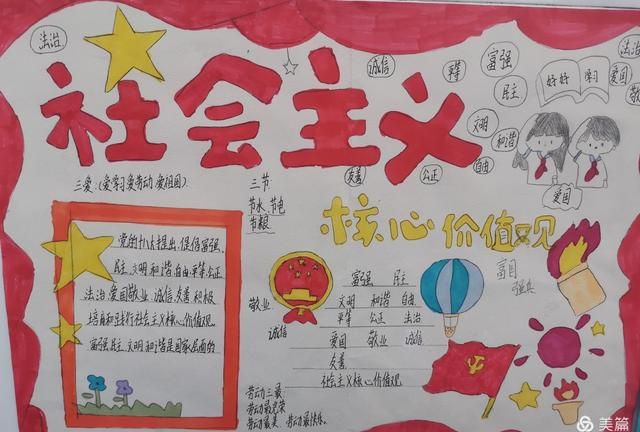 法治
社会主义
诚信
平等
富强
民主
好好
学习
爱国
法治
敬业
文明
和谐
自由
公正
友善
爱国
三爱:(爱学习 爱劳动 爱祖国)
三节:
节水 节电
节粮
核心价值观
党的十八大提出,倡倡富强、
民主、文明、和谐、自由、平等、公正、
法治、爱国、敬业、诚信、友善、积极
培育和践行社会主义核心价值观。
富强、民主、文明、和谐是国家层面的
敬业
诚信
富强 民主
文明 和谐 自由
平等 公正 法治
爱国 敬业 诚信
友善
社会主义核心价值观
富国
强兵
劳动三最:
劳动最光荣
劳动最美、劳动最快乐。
美篇